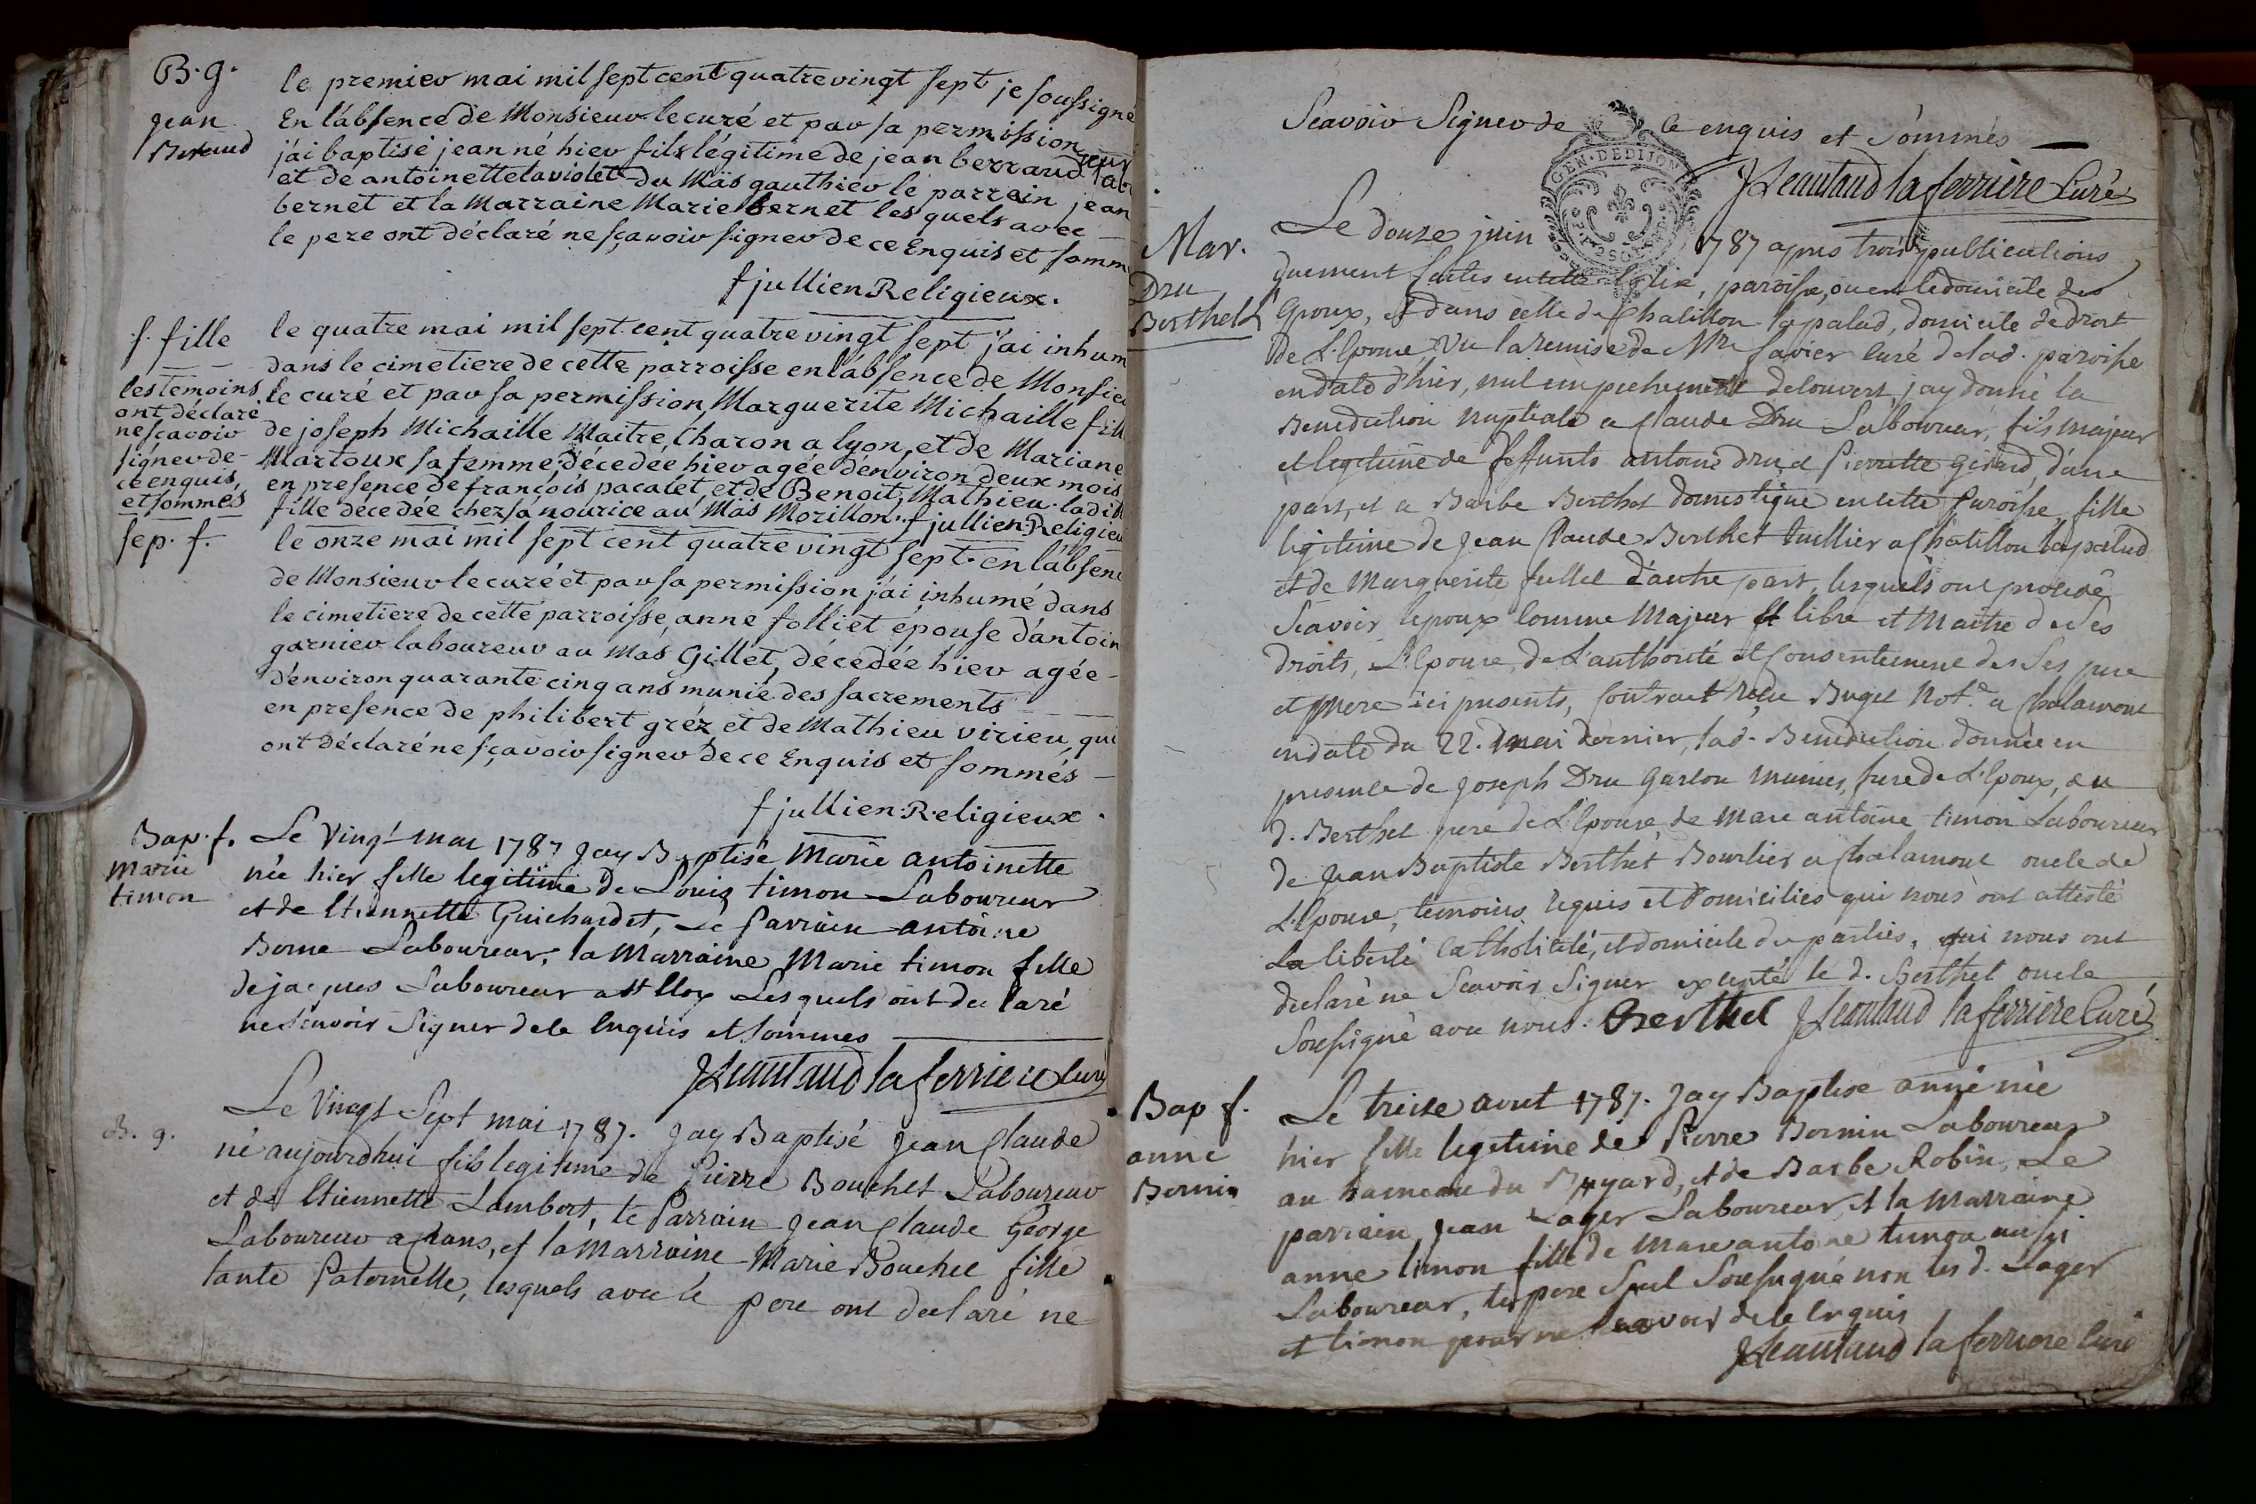 B. g.
jean
Beraud
le premier mai mil sept cent quatre vingt sept je soussigné
En l'absence de Monsieur le curé et par sa permission
j'ai baptisé jean né hier fils légitime de jean berraud
et de antoinette laviolet du Mäs gauthier le parrein jean
bernet et la Marraine Marie bernet les quels avec
le pere ont déclaré ne sçavoir signer de ce Enquis et somm
f jullien Religieux.
f. fille
les temoins
ont déclaré
ne sçavoir
signer de
ce enquis,
et sommés
le quatre mai mil sept cent quatre vingt sept j'ai inhum
dans le cimetiere de cette parroisse en l'absence de Monsieu
le curé et par sa permission Marguerite Michaille fill
de joseph Michaille Maitre Charon a lyon, et de Mariane
Martoux sa femme, décedée hier agée d'environ deux mois
en presence de françois pacalet, et de Benoit Mathieu. ladit
fille décedée chez sa nourice au Mäs Morillon. f jullien Religieu
sep. f.
le onze mai mil sept cent quatre vingt sept en l'absenc
de Monsieur le curé et par sa permission j'ai inhumé dans
le cimetiere de cette parroisse, anne folliet épouse d'antoin
garnier laboureur au Mas Gillet, décedée hier agée
d'environ quarante cinq ans munie des sacrements
en presence de philibert gréz et de Mathieu virieu, qui
ont déclaré ne sçavoir signer de ce Enquis et sommés
f jullien Religieux.
Bap. f.
Marie
timon
Le vingt mai 1787 jay Baptisé Marie antoinette
née hier fille legitime de Louis timon Laboureur
et de Etiennette Guichardet, Le Parrain antoine
Borne Laboureur, la Marraine Marie timon fille
de jacques Laboureur Les quels ont declaré
ne scavoir Signer de ce Enquis et sommes
JLeautaud laferriere Curé
B. g.
Le Vingt Sept mai 1787. jay Baptisé jean Claude
né aujourdhui fils legitime de Pierre Bouchet Laboureur
et de Etiennette Lambert, le Parrain jean Claude George
Laboureur a Crans, et la Marraine Marie Bouchet fille
tante Paternelle, lesquels avec le pere ont declaré ne
Scavoir Signer de ce enquis et sommés
GEN. DE DIJON
JLeautaud laferriere Curé
Mar.
Dru
Berthet
Le douze juin 1787 apres trois publications
duement faites en cette Eglise, paroisse, ou est le domicile des
Epoux, et dans celle de Chatillon la palud, domicile de droit
de L'Epouse, Vu la remise de Mre favier Curé de lad. paroisse
en date d'hier, nul empechement decouvert, jay donné la
Benediction Nuptiale a Claude Dru Laboureur, fils majeur
et legitime de deffunts antoine dru et Pierrette Girard, d'une
part, et a Barbe Berthet domestique en cette Paroisse, fille
legitime de jean Claude Berthet tuillier a Chatillon la palud
et de Marguerite d'autre part, lesquels ont procedé
Scavoir l'epoux comme Majeur et libre et Maitre de Ses
droits, L'Epouse, de L'authorité et Consentement de Ses pere
et mere ici presents, Contract reçu Buget Not.e a Chalamont
en date du 22. mai dernier, lad. Benediction donnée en
presence de joseph Dru Garçon Meunier, frere de L'Epoux, du
d. Berthet pere de L'Epouse, de Marc antoine timon Laboureur
de jean Baptiste Berthet Bourlier a Chalamont oncle de
L'Epouse, temoins requis et domiciliés qui nous ont attesté
La liberté Catholicité, et domicile des parties, qui nous ont
declaré ne Scavoir Signer excepté le d. Berthet oncle
Soussigné avec nous. Berthet JLeautaud laferriere Curé
Bap f.
anne
Bernin
Le treize aout 1787. jay Baptisé anne née
hier fille legitime de Pierre Bernin Laboureur
au hameau du , et de Barbe Robin, Le
parrain jean Lager Laboureur, et la Marraine
anne timon fille de Marc antoine timon aussi
Laboureur, le pere Seul Soussigné non les d. Lager
et timon pour ne Scavoir de ce Enquis
JLeautaud laferriere Curé